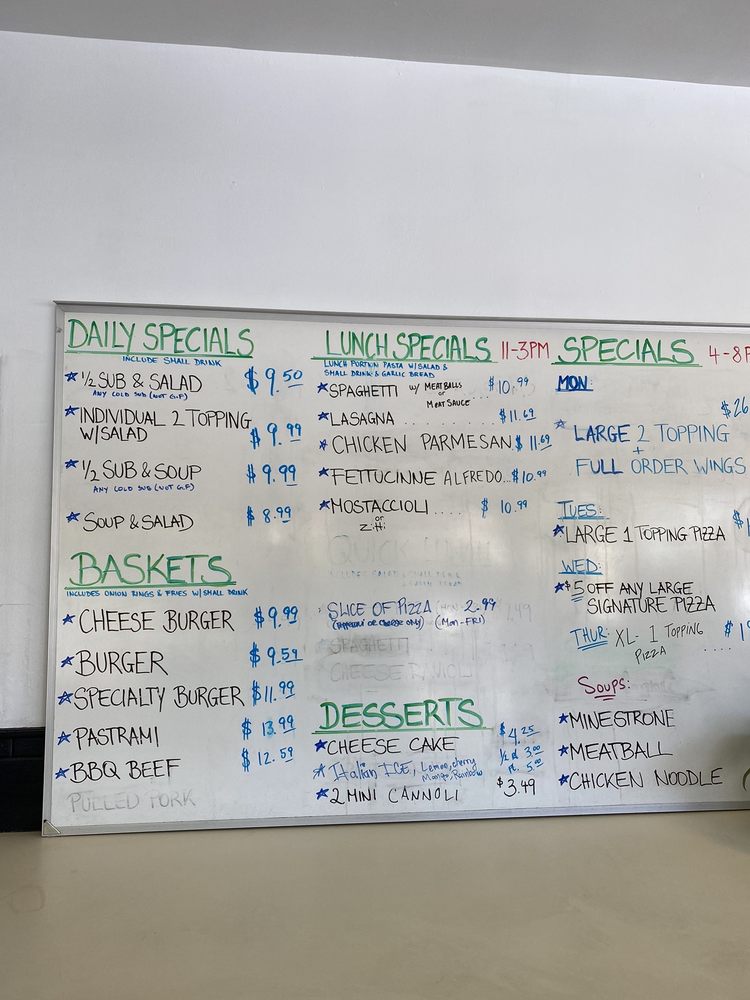 DAILY SPECIALS
INCLUDE SMALL DRINK
½ SUB & SALAD $9.50
ANY COLD SUB (NOT G.F)
INDIVIDUAL 2 TOPPING
W/SALAD $9.99
½ SUB & SOUP $9.99
ANY COLD SUB (NOT G.F)
SOUP & SALAD $8.99
BASKETS
INCLUDES ONION RINGS & FRIES W/ SMALL DRINK
CHEESE BURGER $9.99
BURGER $9.59
SPECIALTY BURGER $11.99
PASTRAMI $13.99
BBQ BEEF $12.59
PULLED PORK
LUNCH SPECIALS 11-3PM
LUNCH PORTION PASTA W/SALAD &
SMALL DRINK & GARLIC BREAD
SPAGHETTI W/ MEATBALLS $10.99
or
MEAT SAUCE
LASAGNA $11.69
CHICKEN PARMESAN $11.69
FETTUCINNE ALFREDO...$10.99
MOSTACCIOLI .... $10.99
or
Ziti
SLICE OF PIZZA 2.99
(PEPPERONI OR CHEESE ONLY) (MON-FRI)
SPAGHETTI
CHEESE RAVIOLI
DESSERTS
CHEESE CAKE $4.25
Italian ICE, Lemon, cherry ½ d 3.00
Mango, Rainbow 5.00
2 MINI CANNOLI $3.49
SPECIALS 4-8P
MON:
$26
LARGE 2 TOPPING
+
FULL ORDER WINGS
TUES:
LARGE 1 TOPPING PIZZA $1
WED:
$5 OFF ANY LARGE
SIGNATURE PIZZA
THUR: XL- 1 TOPPING $1
PIZZA ....
SOUPS:
MINESTRONE
MEATBALL
CHICKEN NOODLE